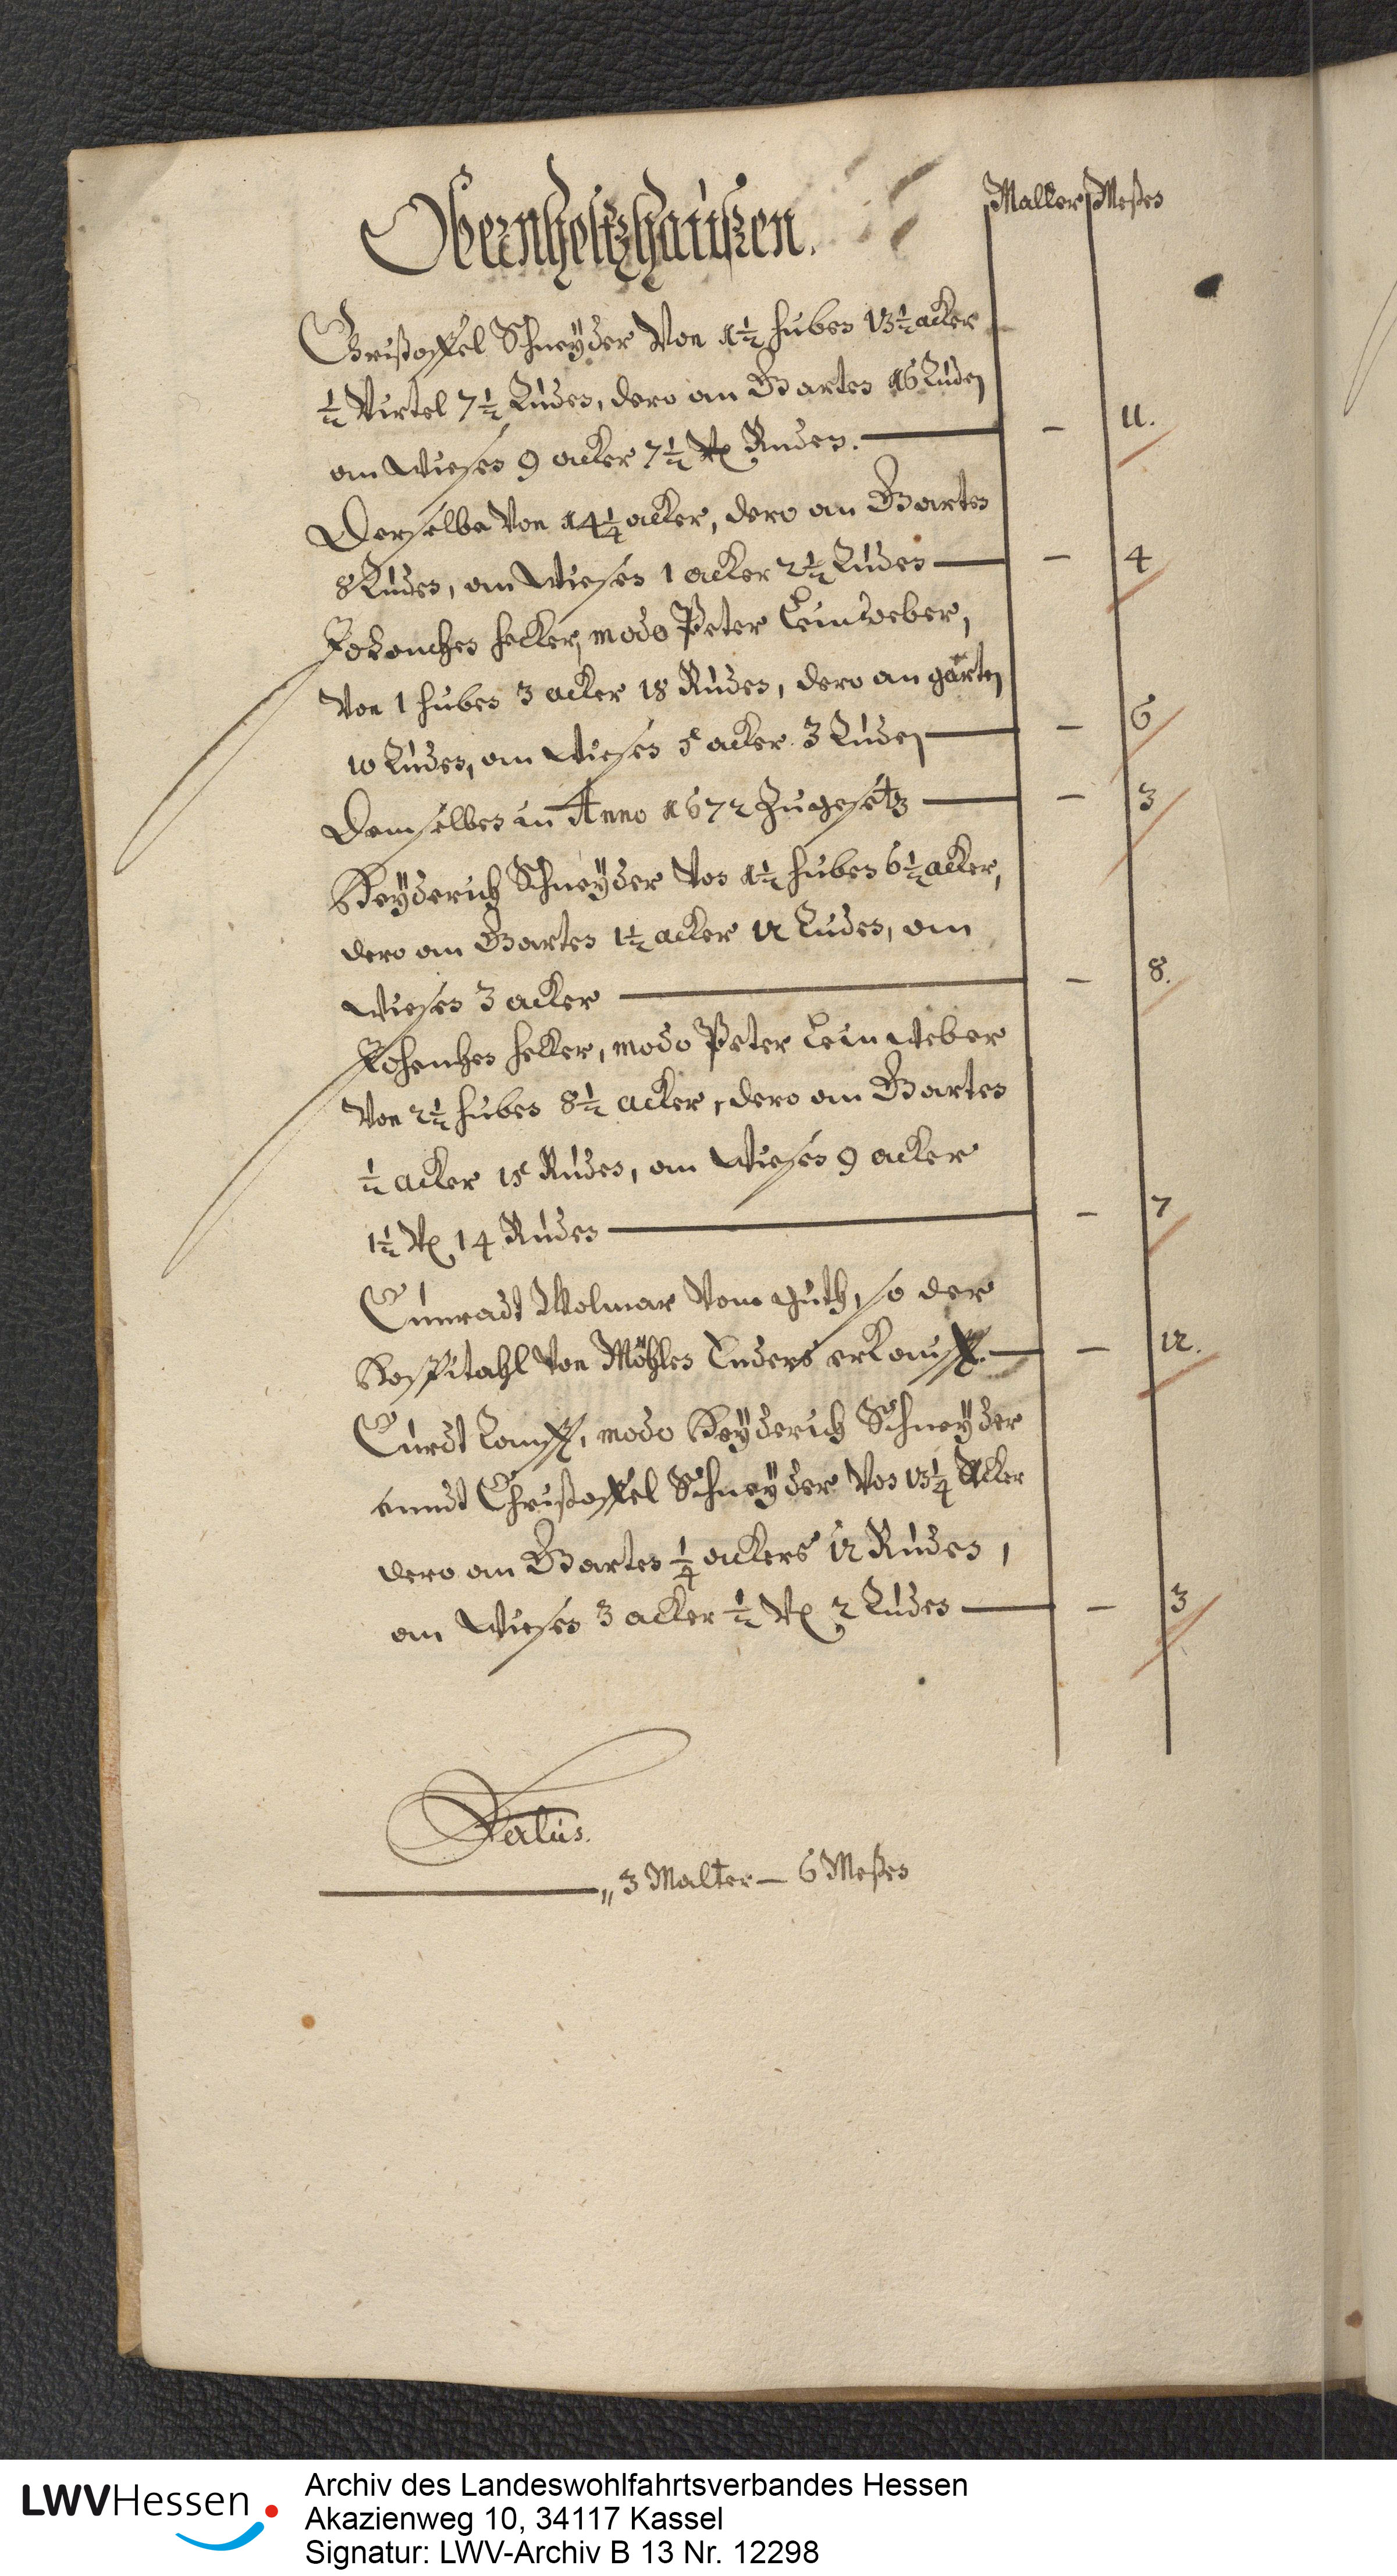 Obernholtzhaußen.
Malter Meßen
Christoffel Schneyder Von 1½ huben 13½ acker
½ Virtel 7½ Ruden, dero an Garten 16 Ruden
an Wiesen 9 acker 7½ Ruden. — 11.
Derselbe Von 14¼ acker, dero an Garten
8 Ruden, an Wiesen 1 acker 2½ Ruden — 4
hecker, modo Peter Leinweber,
Von 1 huben 3 acker 18 Ruden, dero an gärten
10 Ruden, an Wiesen 5 acker 3 Ruden — 6
Demselben in Anno 1672 Zugesetz — 3
Heyderich Schneyder Von 1½ huben 6½ acker,
dero an Garten 1½ acker 12 Ruden, an
Wiesen 3 acker — 8.
hecker, modo Peter Leinweber
Von 2½ huben 8½ acker, dero an Garten
½ acker 15 Ruden, an Wiesen 9 acker
1½ 14 Ruden — 7
Cunradt Volmar Vom guth, so der
Hospitahl Von Möhlen Luders erkaufft. — 12.
Curdt modo Heyderich Schneyder
unndt Christoffel Schneyder Von 13¼ Acker
dero an Garten ¼ ackers 12 Ruden,
an Wiesen 3 acker ½ 2 Ruden — 3
Latus.
3 Malter — 6 Meßen
LWVHessen
Archiv des Landeswohlfahrtsverbandes Hessen
Akazienweg 10, 34117 Kassel
Signatur: LWV-Archiv B 13 Nr. 12298